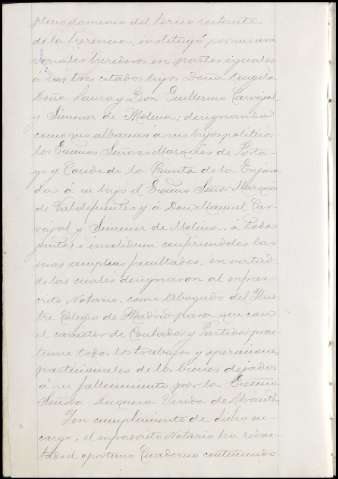 pleno dominio del tercio restante
de la herencia, instituyó por sus uni-
versales herederos en partes iguales
á sus tres citados hijos Doña Angela
Doña Laura y Don Guillermo Carvajal
y Jimenez de Molina; designando
como sus albaceas á sus hijos políticos
los Excmos Señores Marqués de
y Conde de la Quinta de la Enjara-
da á su hijo el Excmo Señor Marqués
de Puebla y á Don Manuel Car-
vajal y Jimenez de Molina, á todos
juntos é insolidum confiriendoles las
mas amplias facultades, en virtud
de las cuales designaron al infras-
crito Notario, como Abogado del Ilus-
tre Colegio de Madrid para que con
el carácter de Contador y Partidor prac-
ticase todos los trabajos y operaciones
particionales de los bienes dejados
á su fallecimiento por la Excma
Señora Duquesa Viuda de Abrantes.
En cumplimiento de dicho en-
cargo, el infrascrito Notario ha
el oportuno Cuaderno